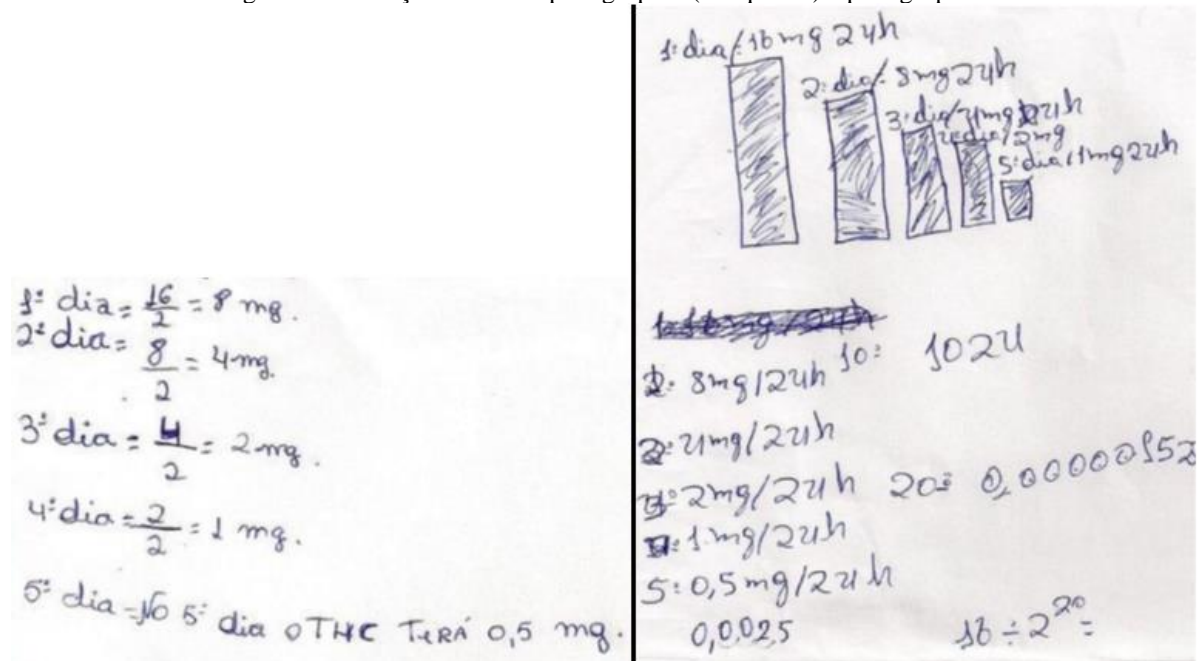 1º dia = 16/2 = 8 mg.
2º dia = 8/2 = 4 mg.
3º dia = 4/2 = 2 mg.
4º dia = 2/2 = 1 mg.
5º dia = No 5º dia o THC TERÁ 0,5 mg.
1º dia/ 16 mg 24h
2º dia/ 8mg 24h
3º dia/ 4mg 24h
4º dia/ 2mg
5º dia/ 1mg 24h
10º 1024
2º 8mg/24h
4mg/24h
2mg/24h
20º 0,00000152
1mg/24h
5º 0,5mg/24h
0,0025
16 ÷ 2^20 =